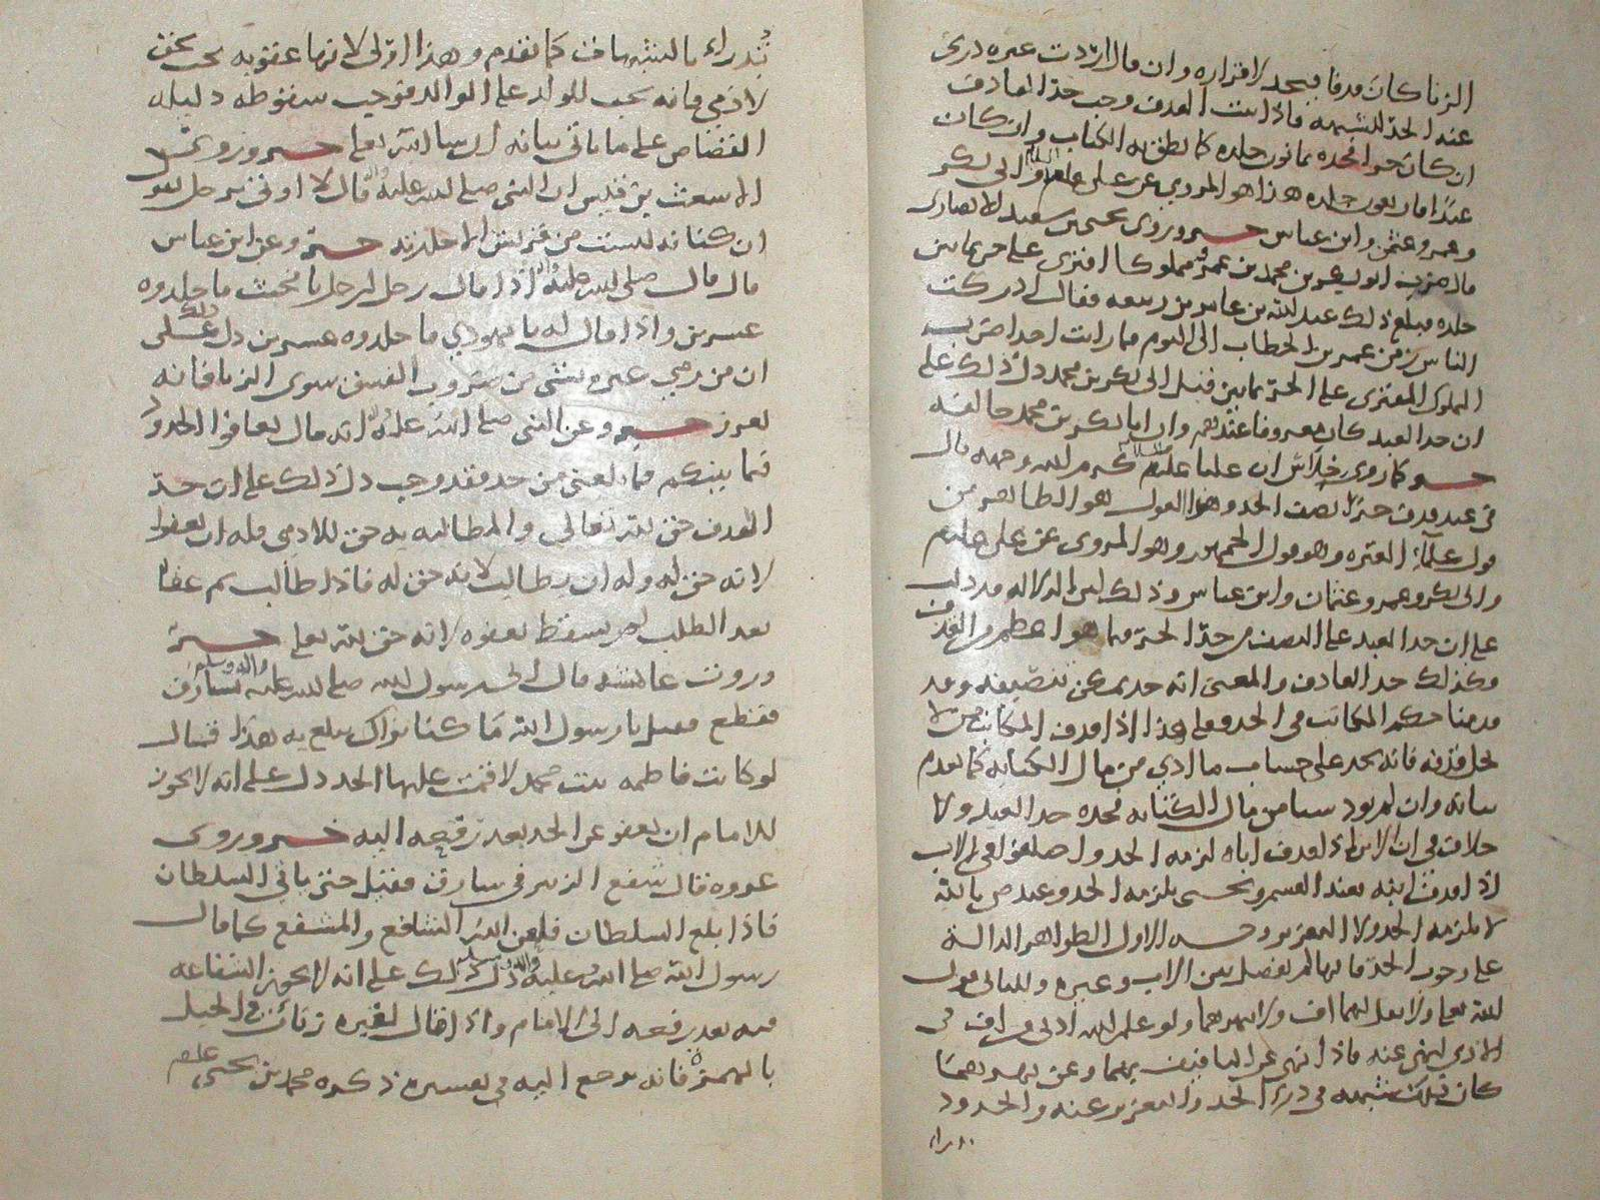 الزنا كان قذفا فيحد لاقراره وان قال اردت غيره درئ
عند الحد للشبهة فاذا ثبت القذف وجب حد القاذف
ان كان حرا فحده ثمانون جلدة كما نطق به الكتاب وان كان
عبدا فاربعون جلدة هذا هو المروي عن علي عليه السلام وابي بكر
وعمر وعثمن وابن عباس خبر وروى يحيى بن سعيد الانصاري
قال ضرب ابو بكر بن محمد بن عمرو مملوكا افترى على حر ثمانين
جلدة فبلغ ذلك عبد الله بن عامر بن ربيعة فقال ادركت
الناس من زمن عمر بن الخطاب الى اليوم فما رايت احدا ضرب
المملوك المفتري على الحر ثمانين قبل ابي بكر بن محمد دل ذلك على
ان حد العبد كان معروفا عندهم وان ابا بكر بن محمد خالفه
خبر كما روى خلاس ان عليا عليه السلام كرم الله وجهه قال
في عبد قذف حرا نصف الحد وهذا القول هو الظاهر من
قول علماء العترة وهو قول الجمهور وهو المروي عن علي عليلم
وابي بكر وعمر وعثمان وابن عباس وذلك لان الدلالة قد دلت
على ان حد العبد على النصف من حد الحر فيما هو اعظم من القذف
فكذلك حد القاذف والمعنى انه حد يمكن تنصيفه وقد
قدمنا حكم المكاتب في الحد فعلى هذا اذا قذف المكاتب من لا
يحل قذفه فانه يحد على حساب ما ادي من مال الكتابة كما تقدم
بيانه وان لم يود شيا من مال الكتابة فحده حد العبد ولا
خلاف في ان الابن اذا قذف اباه لزمه الحد واختلفوا في الاب
اذا قذف ابنه فعند القسم ويحيى يلزمه الحد وعند ص بالله
لا يلزمه الحد ولا التعزير وجه الاول الظواهر الدالة
على وجوب الحد فانها لم تفصل بين الاب وغيره وللثاني قول
الله تعالى ولا تقل لهما اف ولا تنهرهما ولو علم الله ادنى من اف في
الاذى لنهى عنه فاذا نهى عن التافيف بهما وعن نهرهما
كان ذلك شبهة في درء الحد والتعزير عنه والحدود
تدراء
تدراء بالشبهات كما تقدم وهذا اولى لانها عقوبة تجب بحق
لادمي فانه يجب للولد على الوالد فوجب سقوطه دليله
القصاص على ما ياتي بيانه ان شا الله تعالى خبر وروى
الاشعث بن قيس ان النبي صلى الله عليه واله قال لا اوتى برجل يقول
ان كنانة ليست من قريش الا جلدته خبر وعن ابن عباس
قال قال صلى الله عليه واله اذا قال رجل لرجل يا مخنث فاجلدوه
عشرين واذا قال له يا يهودي فاجلدوه عشرين دل ذلك على
ان من رمى غيره بشي من ضروب الفسق سوى الزنا فانه
يعزر خبر وعن النبي صلى الله عليه واله انه قال تعافوا الحدود
فيما بينكم فما بلغني من حد فقد وجب دل ذلك على ان حد
القذف حق لله تعالى والمطالبة به حق للادمي فله ان يعفوا
لانه حق له وله ان يطالب لانه حق له فاذا طالب ثم عفا
بعد الطلب لم يسقط بعفوه لانه حق لله تعالى خبر
وروت عائشة قال اتى رسول الله صلى الله عليه واله وسلم بسارق
فقطع فقيل يا رسول الله ما كنا نراك تبلغ به هذا قال
لو كانت فاطمة بنت محمد لاقمت عليها الحد دل على انه لا يجوز
للامام ان يعفو عن الحد بعد رفعه اليه خبر وروى
عروة قال شفع الزبير في سارق فقيل حتى ياتي السلطان
فاذا بلغ السلطان فلعن الله الشافع والمشفع كما قال
رسول الله صلى الله عليه واله وسلم دل ذلك على انه لا يجوز الشفاعة
فيه بعد رفعه الى الامام واذا قال لغيره زنات في الجبل
بالهمزة فانه يرجع اليه في تفسيره ذكره محمد بن يحيى عليلم